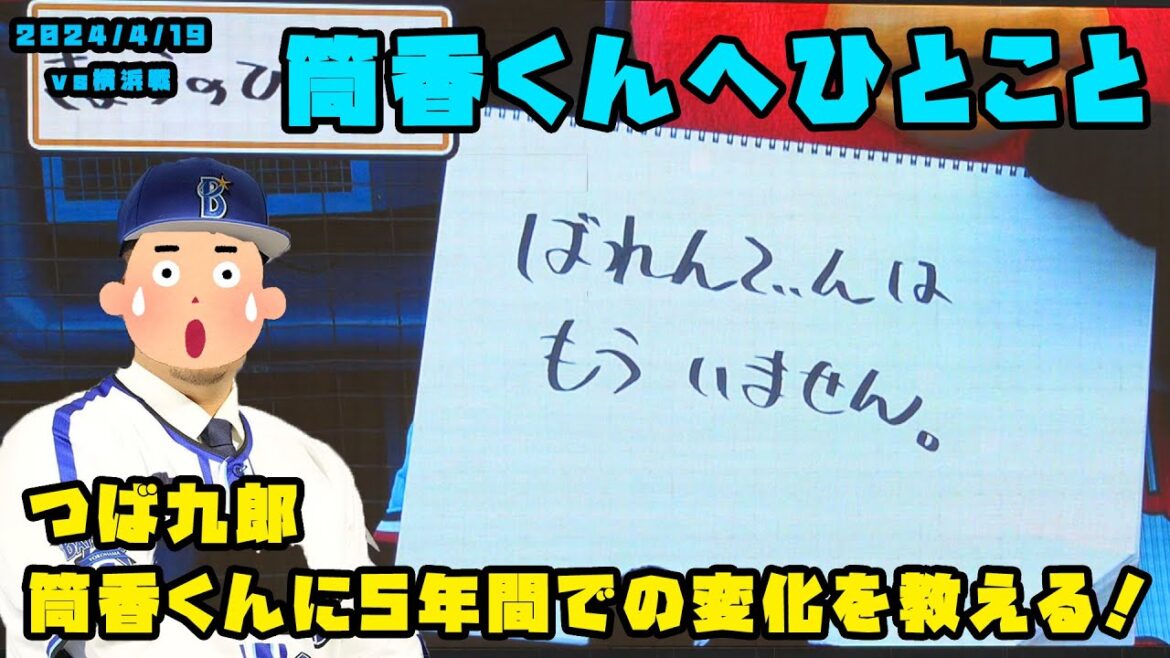 2024/4/19
vs横浜戦
筒香くんへひとこと
きょうのひ
ばれんでぃんは
もういません。
B
つば九郎
筒香くんに5年間での変化を教える!